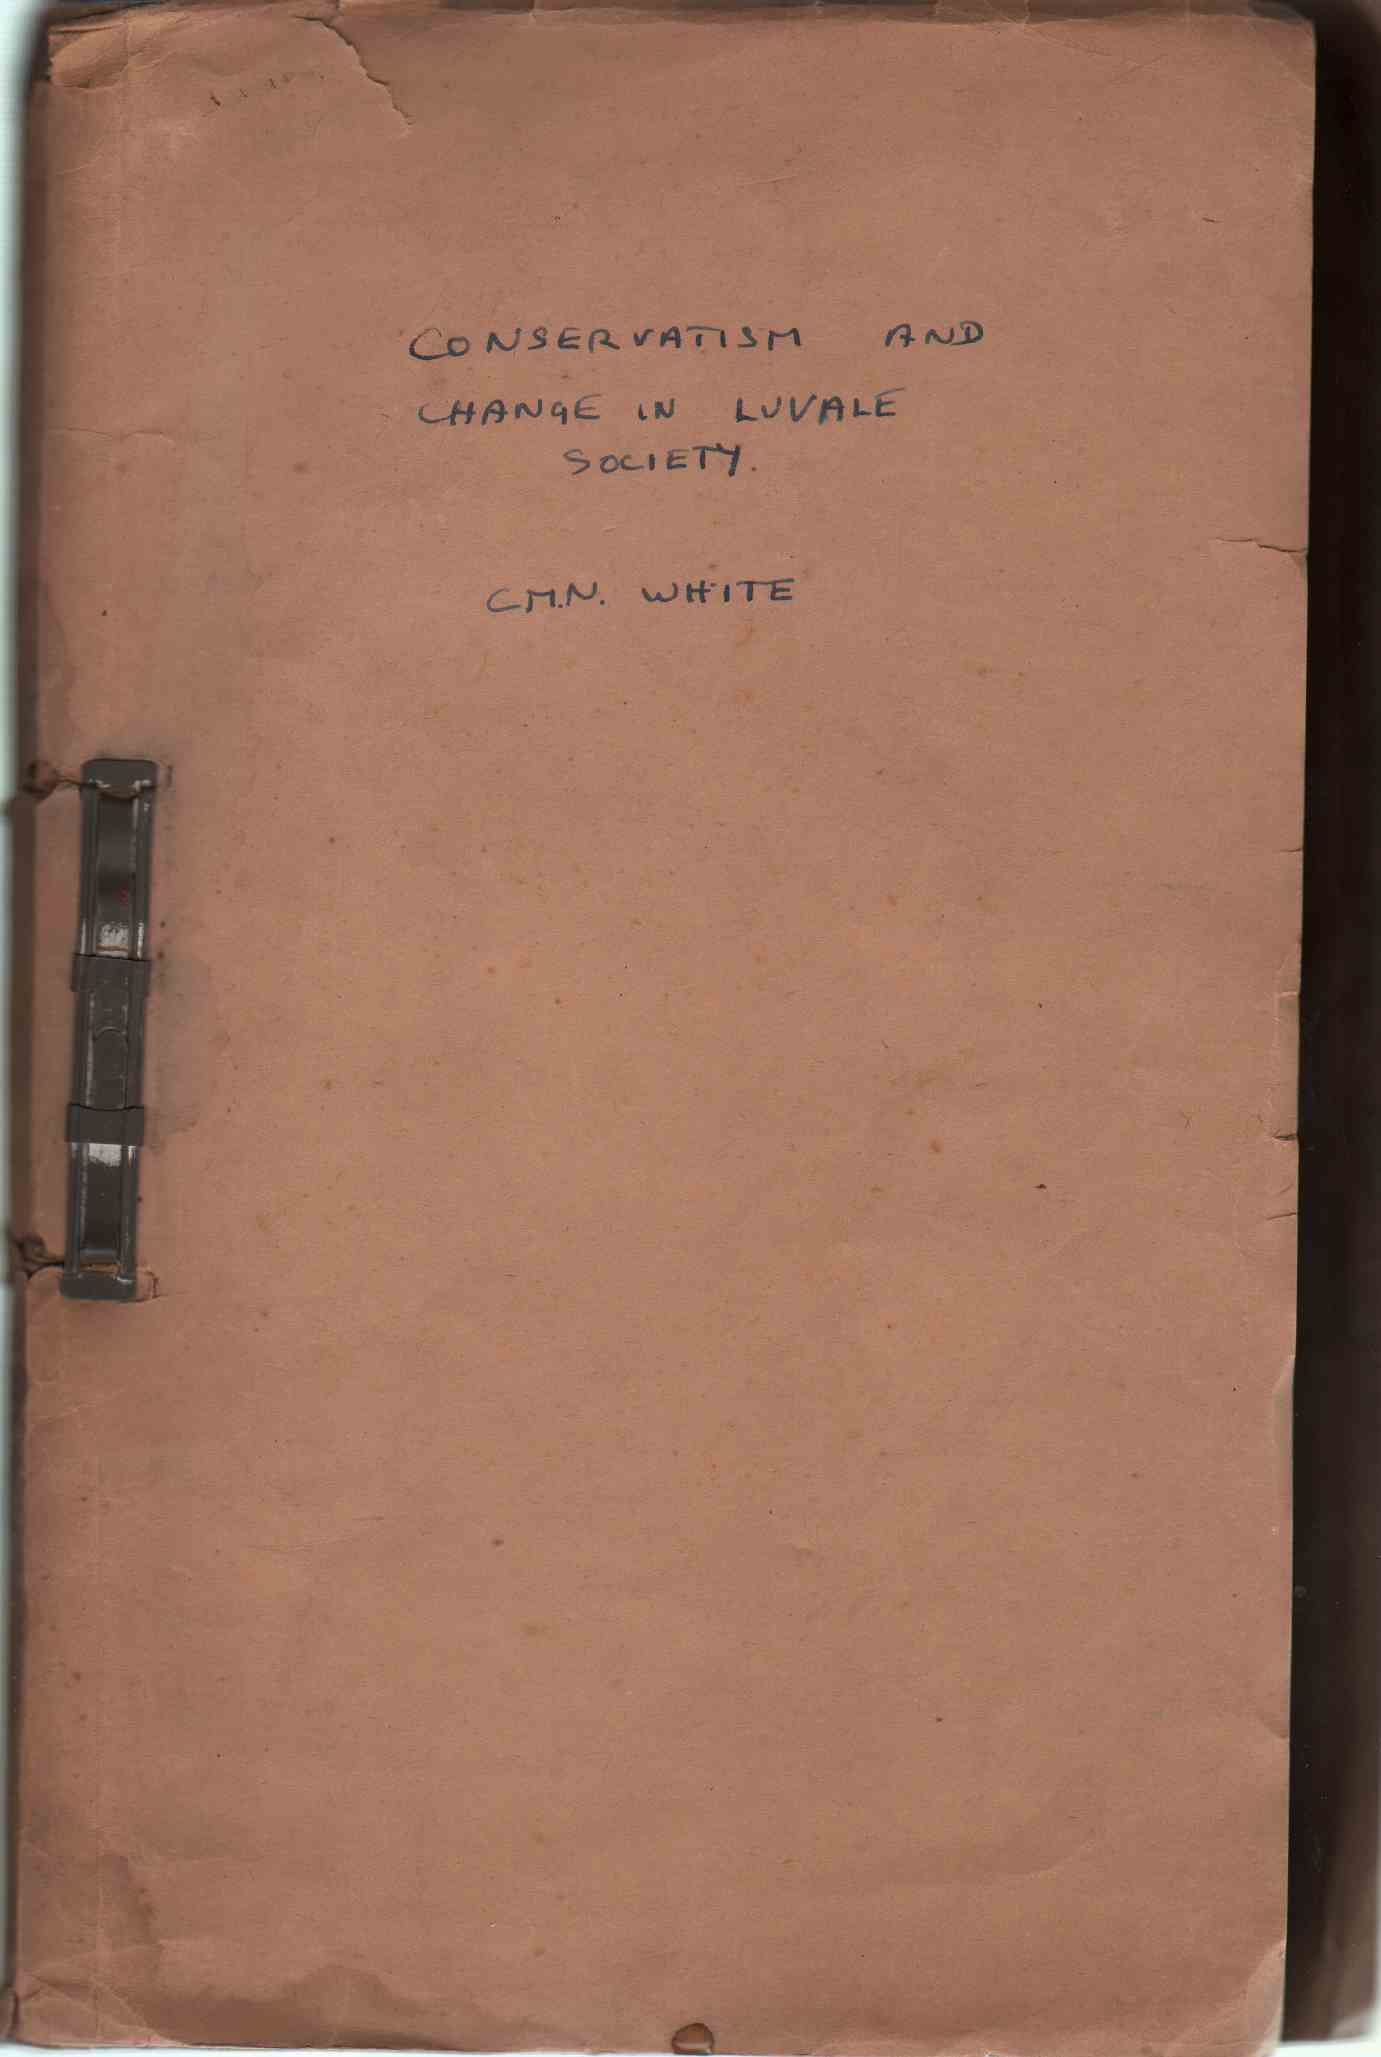 CONSERVATISM AND
CHANGE IN LUVALE
SOCIETY.
C.M.N. WHITE